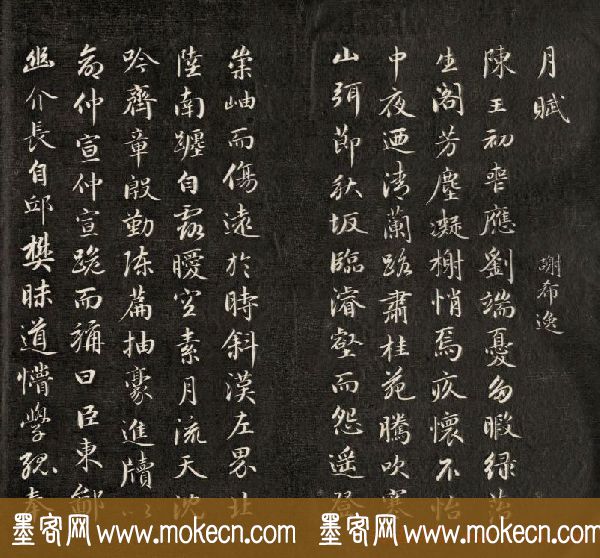 月賦
謝希逸
陳王初喪應劉端憂多暇綠苔
生閣芳塵凝榭悄焉疚懷不怡
中夜迺清蘭路肅桂苑騰吹寒
山弭節秋坂臨濬壑而怨遙登
崇岫而傷遠於時斜漢左界北
陸南躔白露曖空素月流天沈
吟齊章殷勤陳篇抽豪進牘以
命仲宣仲宣跪而稱曰臣東鄙
幽介長自邱樊昧道懵學孤奉
墨客网 www.mokecn.com 墨客网 www.mokecn.com